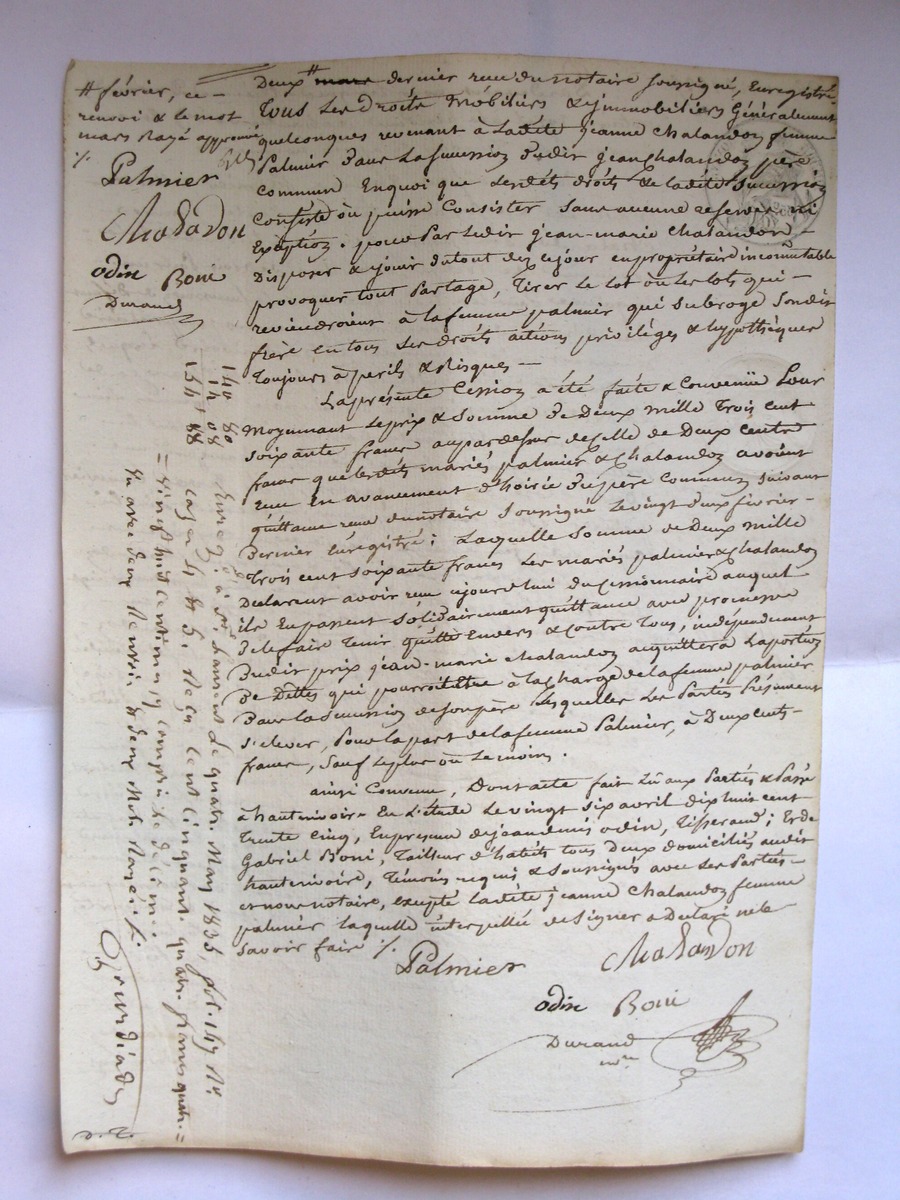 # février, ce
renvoi & le mot
mars Rayé approuvé
Palmier
Chalandon
odin Boni
Durand
Deux # mars dernier reçu du notaire soussigné, Enregistré,
Tous les Droits Mobiliers & ymmobiliers Généralement
quelconques revenant à Ladite jeanne Chalandon femme
Palmier Dans La succession Dudit jean Chalandon père
commun En quoi que lesdits droits & ladite succession
Consiste où puisse Consister sans aucune reserve ni
Exception. pour Par Ledit jean-marie Chalandon
Disposer & jouir du tout dez ce jour en propriétaire incommutable
provoquer tout Partage, Tirer le lot où les lots qui
reviendroient à la femme palmier qui subroge sondit
frère en tous ses droits actions privilèges & hypothèques
Toujours à perils & Risques —
La présente Cession a été faite & Convenüe Pour
Moyennant Le prix & Somme De Deux Mille Trois cent
soixante francs au par dessus de celle de Deux cents
francs que lesdits mariés palmier & Chalandon avoient
reçu En avancement d'hoirie Du père Commun suivant
quittance reçue du notaire soussigné Le vingt deux février
Dernier Enregistré; Laquelle Somme de Deux Mille
Trois cent Soixante francs Les mariés palmier & Chalandon
Declarent avoir reçu cejourd'hui du Cessionnaire auquel
ils En passent Solidairement quittance avec promesse
De le faire Tenir quitte Envers & contre Tous, indépendament
Dudit prix jean-marie Chalandon acquittera La portion
De Dettes qui pourroit être à la charge de la femme palmier
Dans La Succession de son père Lesquelles Les Parties Présument
s'elever, Pour la part de la femme Palmier, à Deux cents
francs, sauf le plus où le moins.
ainsi Convenu, Dont acte fait Lû aux Parties & Passé
à hauterivoire En L'étude Le vingt six avril dix huit cent
Trente Cinq, En presence de jean denis odin, Tisserand; Et de
Gabriel Boni, Tailleur d'habits tous deux domiciliés audit
hauterivoire, Témoins requis & Soussignés avec Les Parties
et nous notaire, excepté ladite jeanne Chalandon femme
palmier laquelle interpellée de Signer a Declaré ne le
savoir fair /.
Palmier Chalandon
odin Boni
Durand
nre
140 80
14 08
154 88
Enreg. à Le quatre May 1835, fol. 147 Rº
Reçu cent cinquante quatre francs quatre
= vingt huit centimes y compris le décime.